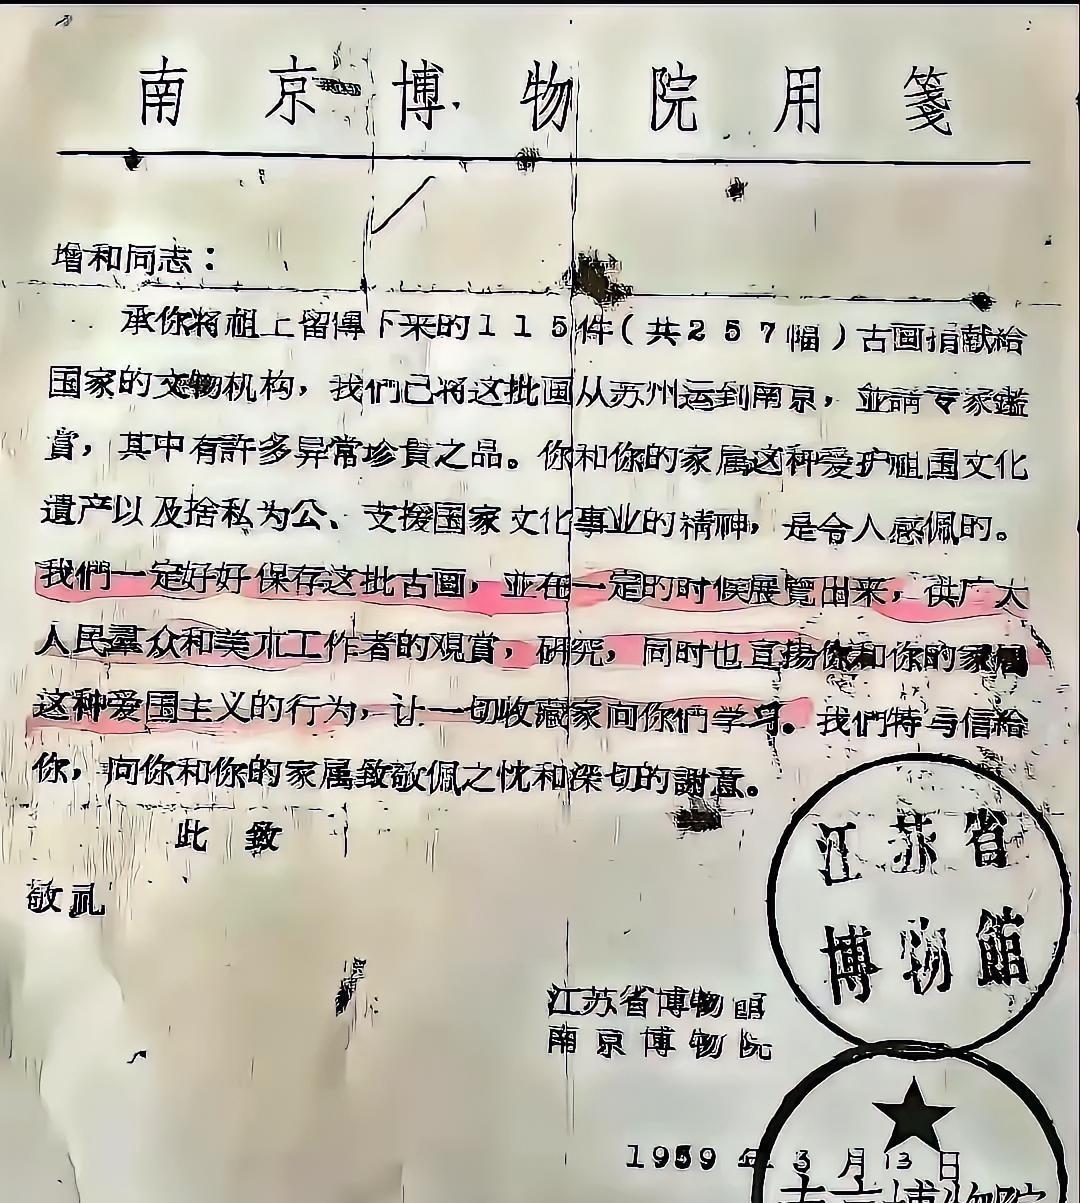 南京博物院用箋
增和同志：
承你将祖上留傳下来的115件(共257幅)古画捐献给
国家的文物机构，我们已将这批画从苏州运到南京，並請专家鑑
賞，其中有許多异常珍貴之品。你和你的家属这种爱护祖国文化
遺产以及捨私为公、支援国家文化事业的精神，是令人感佩的。
我們一定好好保存这批古画，並在一定的时候展覽出来，供广大
人民羣众和美术工作者的观賞，研究，同时也宣揚你和你的家属
这种爱国主义的行为，让一切收藏家向你們学习。我們特写信給
你，向你和你的家属致敬佩之忱和深切的謝意。
此致
敬礼
江苏省
博物館
江苏省博物館
南京博物院
1959年3月13日
南京博物院